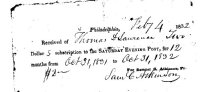 Philadelphia, Feby 4 1832
Received of Thomas S Lawrence Two
Dollar s subscription to the SATURDAY EVENING POST, for 12
months from Oct 31, 1831 to Oct 31, 1832
$2— For Samuel C. Atkinson
Sam C Atkinson